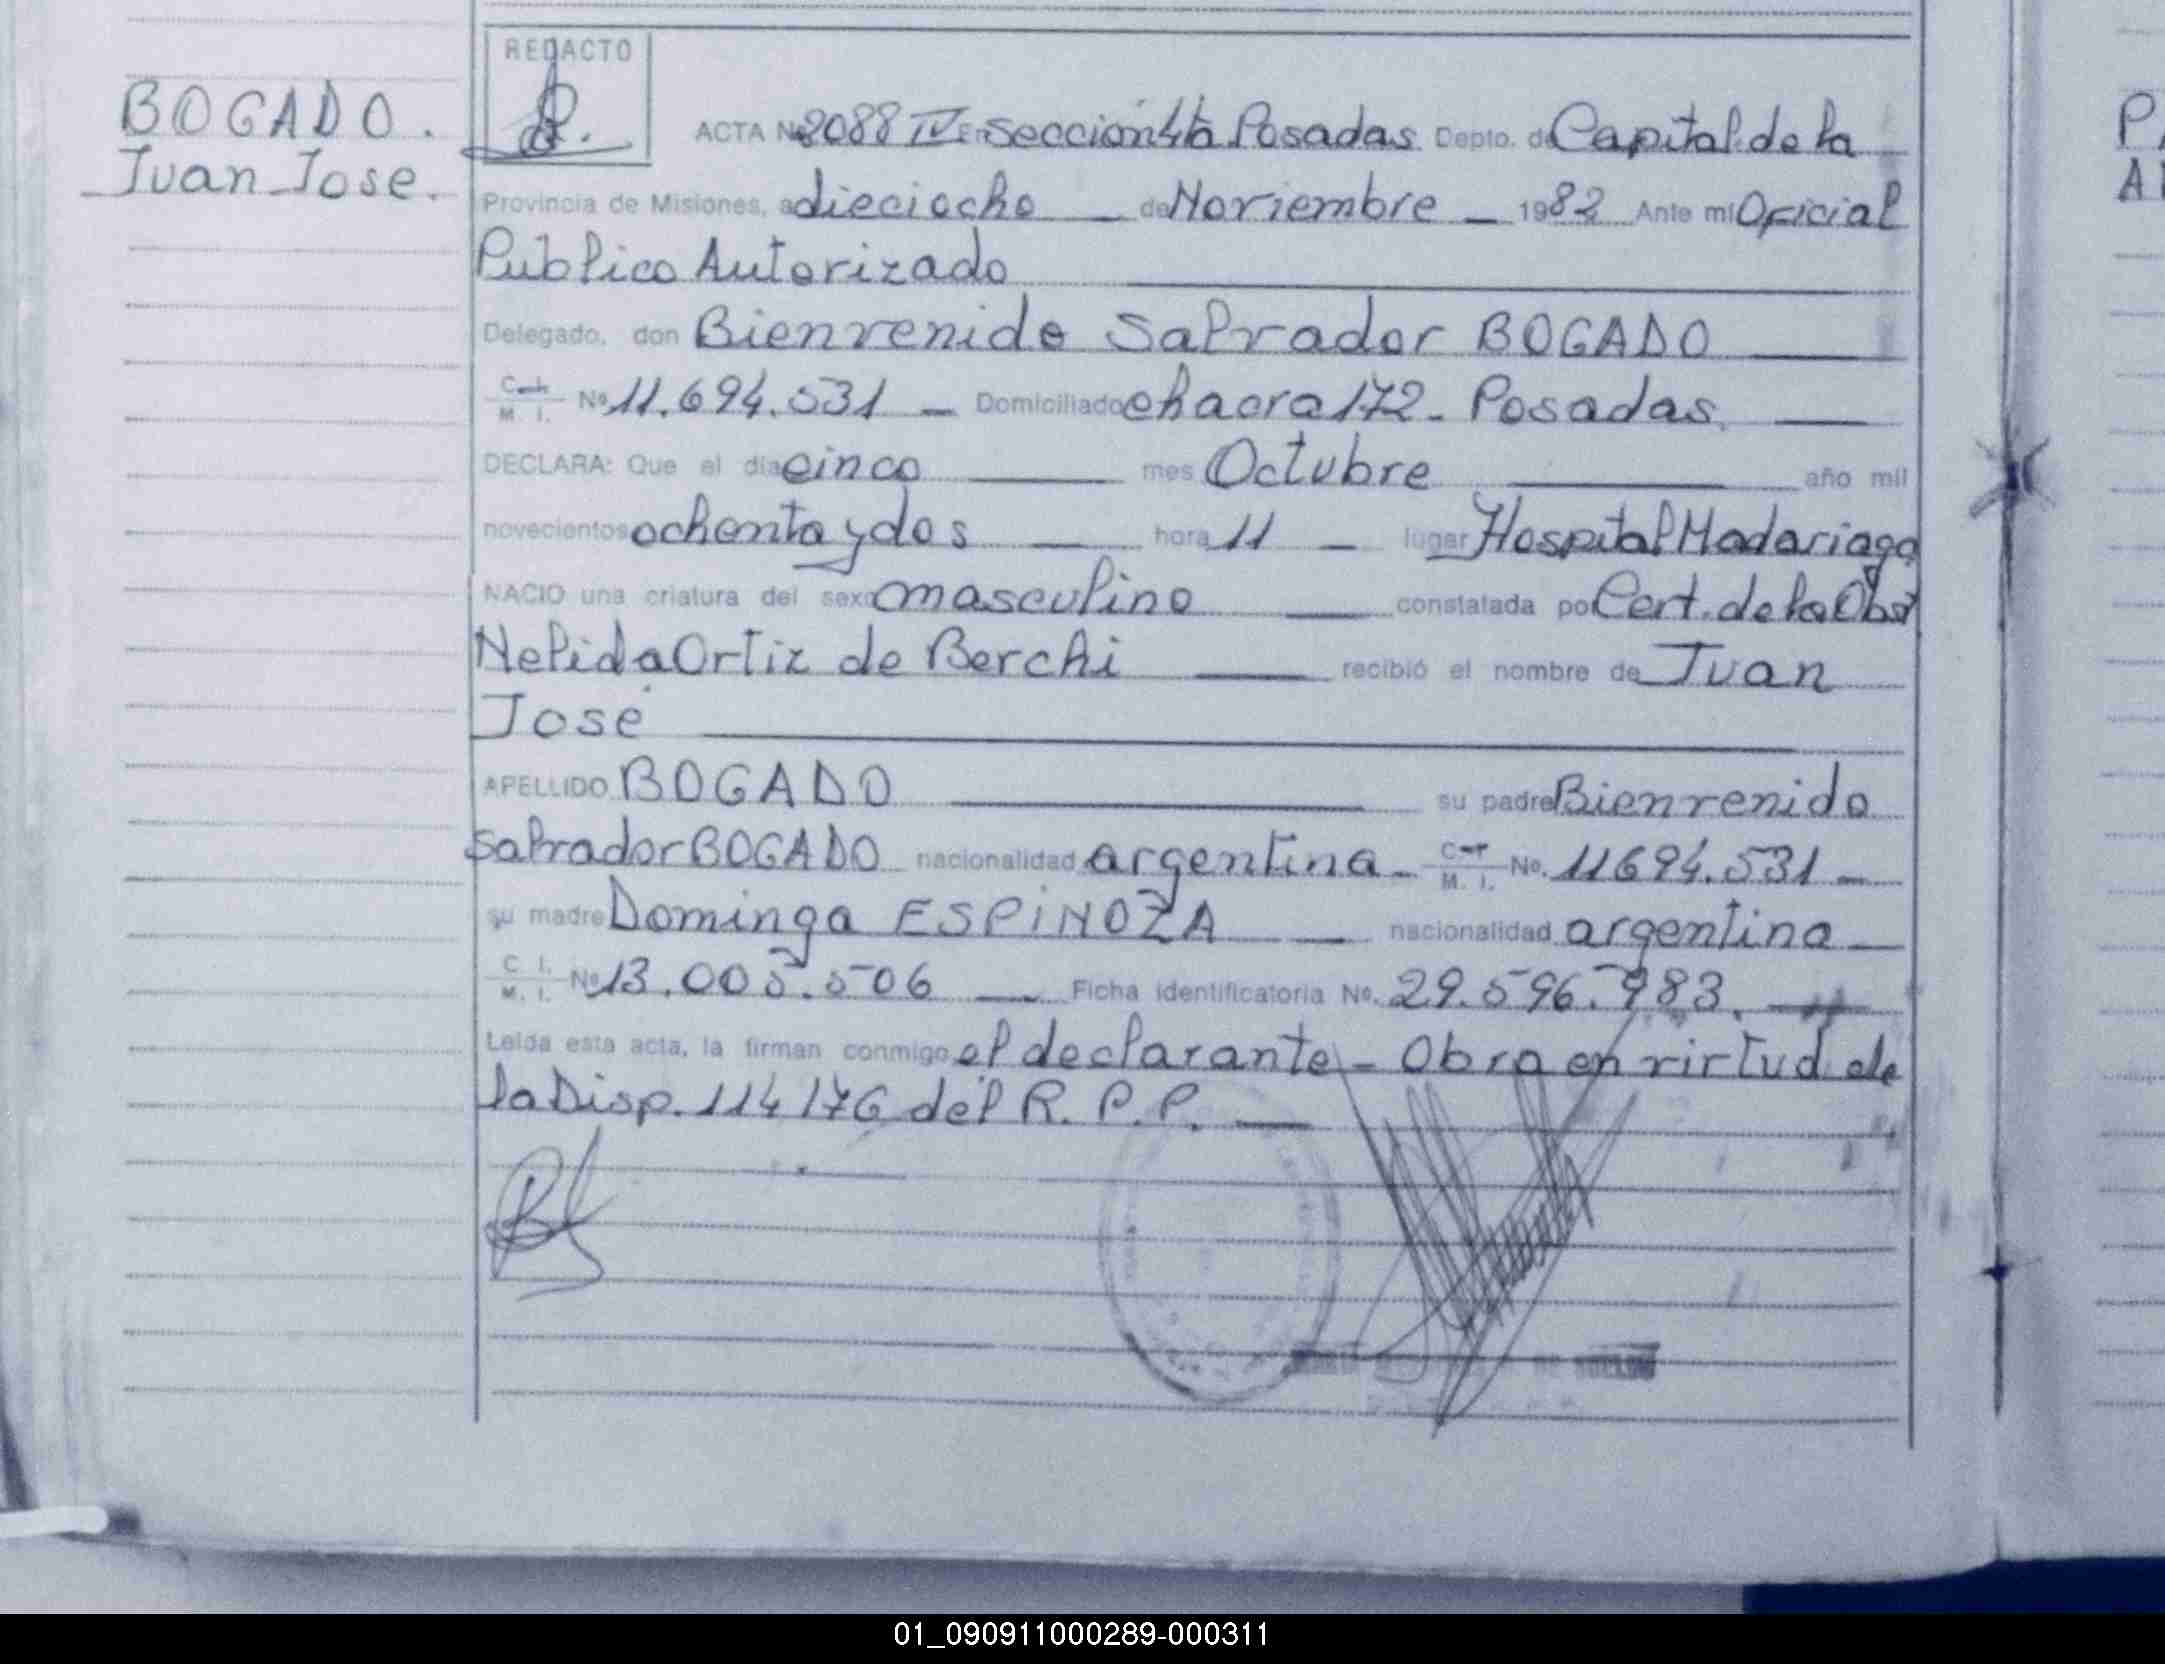 BOGADO.
Juan Jose.
REDACTO
ACTA No 2088 IV En seccion 4ta Posadas Depto. de Capital de la
Provincia de Misiones, a dieciocho de Noviembre 1982 Ante mi Oficial
Publico Autorizado
Delegado, don Bienvenido Salvador BOGADO
C. I. M. I. No 11.694.531 - Domiciliado chacra 172 - Posadas
DECLARA: Que el día cinco mes Octubre año mil
novecientos ochenta y dos hora 11 lugar Hospital Madariaga
NACIO una criatura del sexo masculino constatada por Cert. de la Obst
Nelida Ortiz de Berchi recibió el nombre de Juan
José
APELLIDO BOGADO su padre Bienvenido
Salvador BOGADO nacionalidad argentina - C. I. M. I. No. 11694.531 -
su madre Dominga ESPINOZA nacionalidad argentina
C. I. M. I. No 13.005.506 Ficha identificatoria No. 29.596.983.
Leida esta acta, la firman conmigo el declarante - Obra en virtud de
la Disp. 114/76 del R. P. P.
01_090911000289-000311